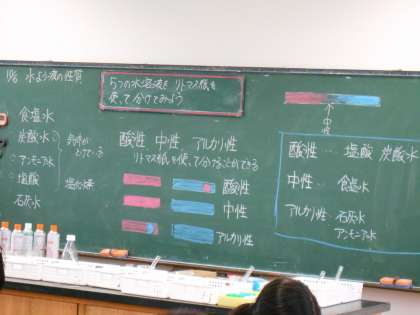 10/6 水よう液の性質
5つの水溶液をリトマス紙を
使って分けてみよう
食塩水
炭酸水
アンモニア水
塩酸
石灰水
気体が
とけている
酸性 中性 アルカリ性
リトマス紙を使って分けることができる
酸性
中性
アルカリ性
中性
酸性… 塩酸 炭酸水
中性… 食塩水
アルカリ性… 石灰水
アンモニア水